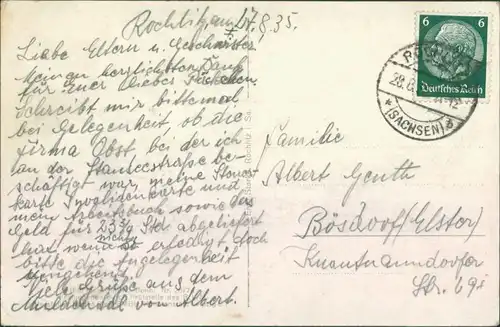 Rochlitz, am 27.8.35.
Liebe Eltern u. Geschwister.
Meinen herzlichsten Dank
für euer liebes Päckchen.
Schreibt mir bitte mal
bei Gelegenheit, ob die
Firma Obst bei der ich
an der straße be-
schäftigt war, meine Steuer-
karte Invalidenkarte und
mein Arbeitsbuch sowie das
Geld für Std. abgeliefert
hat, wenn nicht erledigt doch
bitte die Angelegenheit
umgehend.
Viele Grüße aus dem
Muldental von Albert.
6
Deutsches Reich
(SACHSEN)
Familie
Albert Genth
Bösdorf/Elster/
Knautnaundorfer
Str. 69